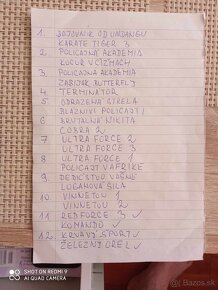 1. BOJOVNÍK OD UNDANGU
KARATE TIGER 3
2. POLICAJNÁ AKADEMIA
KOCÚR V ČIŽMÁCH
3. POLICAJNÁ AKADEMIA
ZABIJAK BUTTERFLY
4 TERMINÁTOR
5 ODRAZENÁ STRELA
BLÁZNIVÍ POLICAJTI
6 BRUTÁLNA NIKITA
COBRA 2
7 ULTRA FORCE 2
ULTRA FORCE 3
8 ULTRA FORCE 1
POLICAJT V AFRIKE
9 DEDIČSTVO VÁŠNE
LOGANOVA SILA
10 VINNETOU 1
VINNETOU 2
11 RED FORCE 3 ✓
KOMANDO ✓
12. KRVAVÝ ŠPORT ✓
ŽELEZNÝ OREL ✓
SHOT ON REDMI 9
AI QUAD CAMERA
bazos.sk